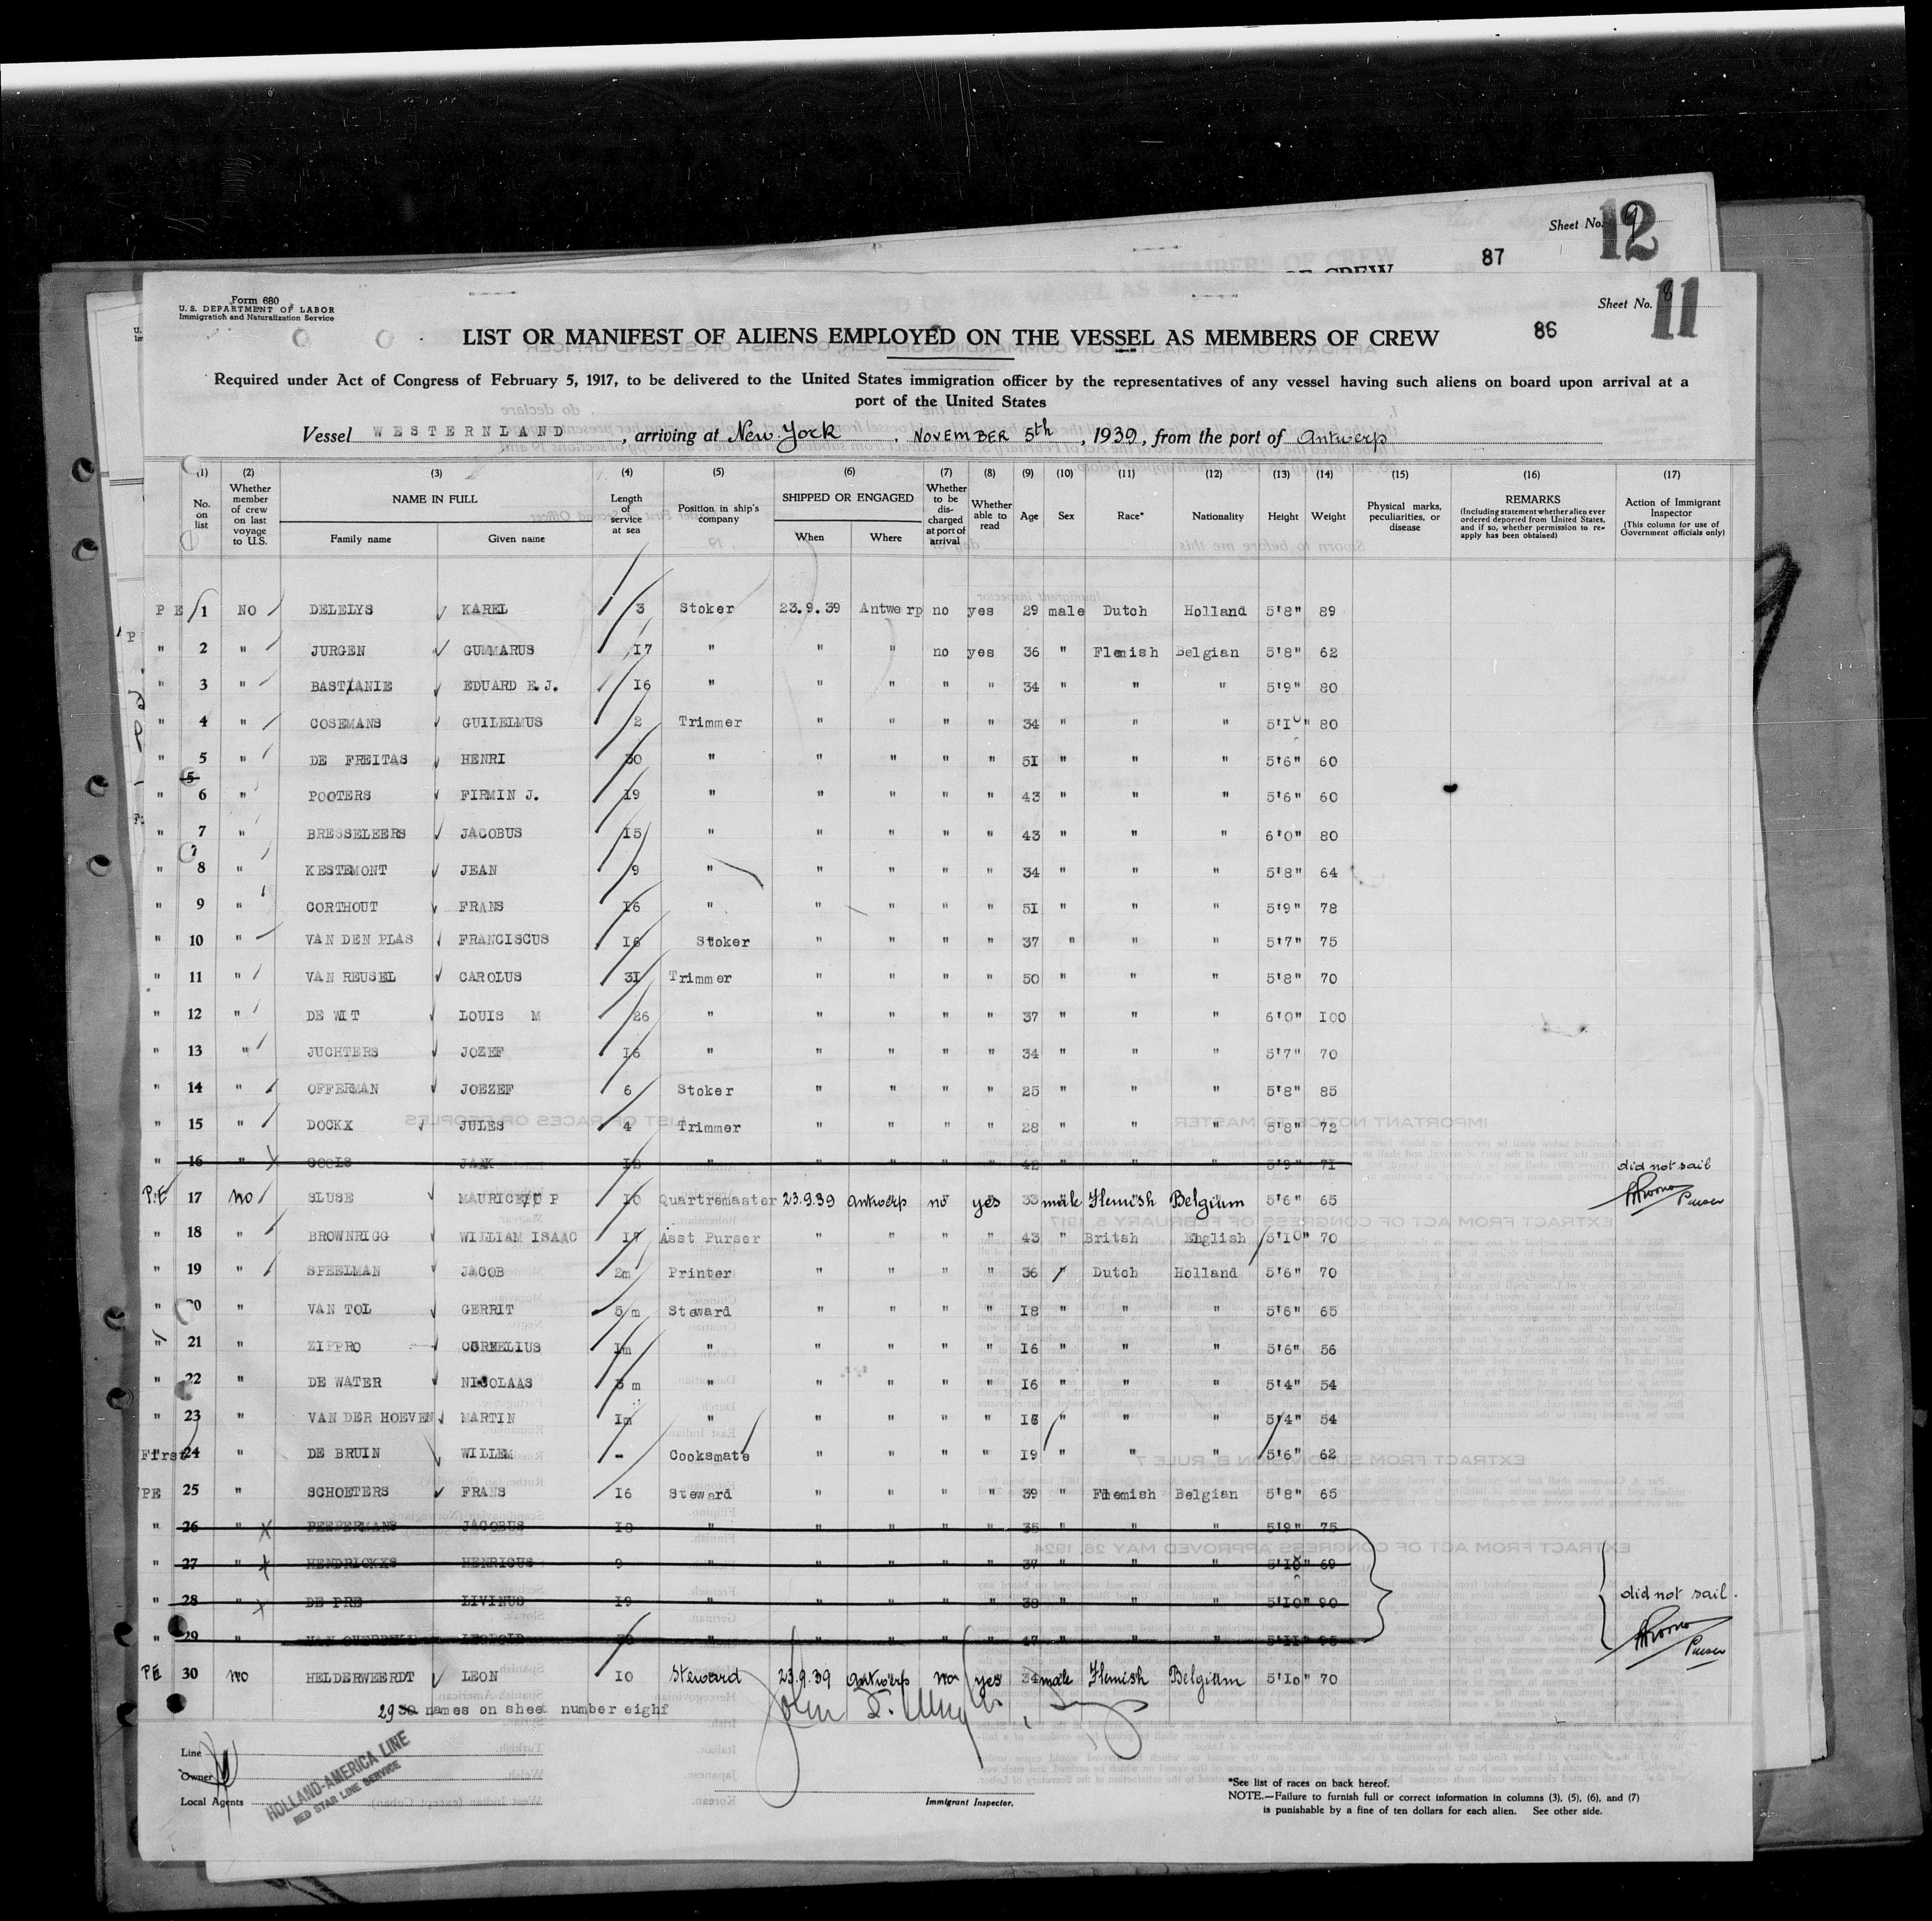 Sheet No. 9
12
87
OF CREW
Form 680
U. S. DEPARTMENT OF LABOR
Immigration and Naturalization Service
Sheet No. 8
11
86
LIST OR MANIFEST OF ALIENS EMPLOYED ON THE VESSEL AS MEMBERS OF CREW
Required under Act of Congress of February 5, 1917, to be delivered to the United States immigration officer by the representatives of any vessel having such aliens on board upon arrival at a
port of the United States
Vessel WESTERNLAND, arriving at New York, NOVEMBER 5th, 1939, from the port of Antwerp
(1) (2) (3) (4) (5) (6) (7) (8) (9) (10) (11) (12) (13) (14) (15) (16) (17)
No. on list
Whether member of crew on last voyage to U.S.
NAME IN FULL
Family name Given name
Length of service at sea
Position in ship's company
SHIPPED OR ENGAGED
When Where
Whether to be discharged at port of arrival
Whether able to read
Age
Sex
Race*
Nationality
Height
Weight
Physical marks, peculiarities, or disease
REMARKS
(Including statement whether alien ever ordered deported from United States, and if so, whether permission to re-apply has been obtained)
Action of Immigrant Inspector
(This column for use of Government officials only)
P E 1 NO DELELYS KAREL 3 Stoker 23.9.39 Antwerp no yes 29 male Dutch Holland 5'8" 89
" 2 " JURGEN GUMMARUS 17 " " " no yes 36 " Flemish Belgian 5'8" 62
" 3 " BASTIANIE EDUARD E.J. 16 " " " " " 34 " " " 5'9" 80
" 4 " COSEMANS GUILELMUS 2 Trimmer " " " " 34 " " " 5'10" 80
" 5 " DE FREITAS HENRI 30 " " " " " 51 " " " 5'6" 60
" 6 " POOTERS FIRMIN J. 19 " " " " " 43 " " " 5'6" 60
" 7 " BRESSELEERS JACOBUS 15 " " " " " 43 " " " 6'0" 80
" 8 " KESTEMONT JEAN 9 " " " " " 34 " " " 5'8" 64
" 9 " CORTHOUT FRANS 16 " " " " " 51 " " " 5'9" 78
" 10 " VAN DEN PLAS FRANCISCUS 16 Stoker " " " " 37 " " " 5'7" 75
" 11 " VAN REUSEL CAROLUS 31 Trimmer " " " " 50 " " " 5'8" 70
" 12 " DE WIT LOUIS M 26 " " " " " 37 " " " 6'0" 100
" 13 " JUCHTERS JOZEF 16 " " " " " 34 " " " 5'7" 70
" 14 " OFFERMAN JOEZEF 6 Stoker " " " " 25 " " " 5'8" 85
" 15 " DOCKX JULES 4 Trimmer " " " " 28 " " " 5'8" 72
" 16 " GOOLS JAAK 12 " " " " " 42 " " " 5'9" 71 did not sail
PE 17 No SLUSE MAURICE P 10 Quartremaster 23.9.39 Antwerp no yes 33 male Flemish Belgium 5'6" 65 Purser
" 18 " BROWNRIGG WILLIAM ISAAC 17 Asst Purser " " " " 43 " Britsh English 5'10" 70
" 19 " SPEELMAN JACOB 2m Printer " " " " 36 " Dutch Holland 5'6" 70
" 20 " VAN TOL GERRIT 5 m Steward " " " " 18 " " " 5'6" 65
" 21 " ZIPPRO CORNELIUS 1m " " " " " 16 " " " 5'6" 56
" 22 " DE WATER NICOLAAS 3 m " " " " " 16 " " " 5'4" 54
" 23 " VAN DER HOEVEN MARTIN 1m " " " " " 16 " " " 5'4" 54
First 24 " DE BRUIN WILLEM - Cooksmate " " " " 19 " " " 5'6" 62
PE 25 " SCHOETERS FRANS 16 Steward " " " " 39 " Flemish Belgian 5'8" 65
" 26 " PEEPERMANS JACOBUS 18 " " " " " 35 " " " 5'9" 75
" 27 " HENDRICKXS HENRICUS 9 " " " " " 37 " " " 5'10" 69
" 28 " DE PRE LIVINUS 19 " " " " " 38 " " " 5'10" 90 did not sail.
" 29 " LEOPOLD " " " " " 47 " " " 5'11" 95 Purser
PE 30 No HELDERWEERDT LEON 10 Steward 23.9.39 Antwerp No yes 34 male Flemish Belgium 5'10" 70
29 30 names on sheet number eight
Line
Owner
Local Agents
HOLLAND-AMERICA LINE
RED STAR LINE SERVICE
Immigrant Inspector.
*See list of races on back hereof.
NOTE.—Failure to furnish full or correct information in columns (3), (5), (6), and (7)
is punishable by a fine of ten dollars for each alien. See other side.